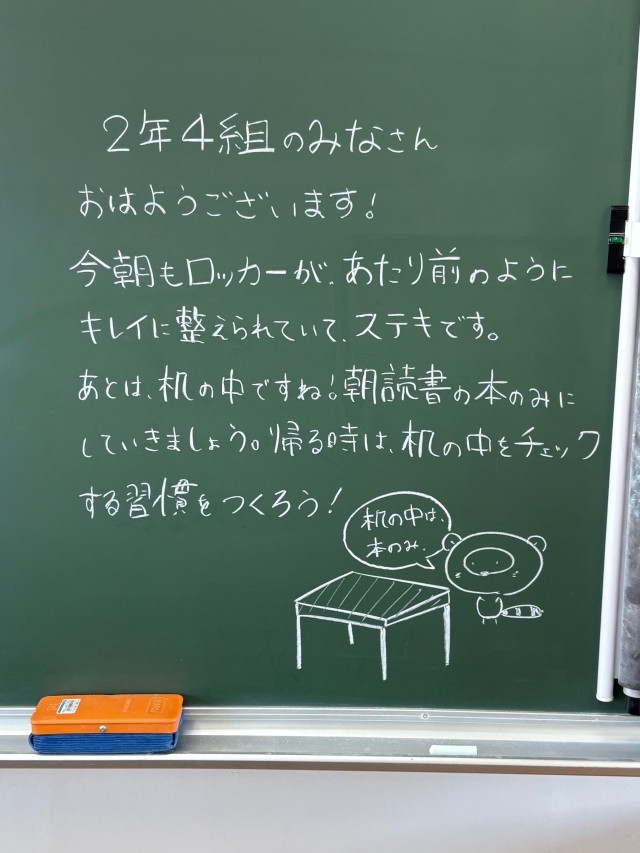 2年4組のみなさん
おはようございます!
今朝もロッカーが、あたり前のように
キレイに整えられていて、ステキです。
あとは、机の中ですね!朝読書の本のみに
していきましょう。帰る時は、机の中をチェック
する習慣をつくろう!
机の中は、
本のみ.